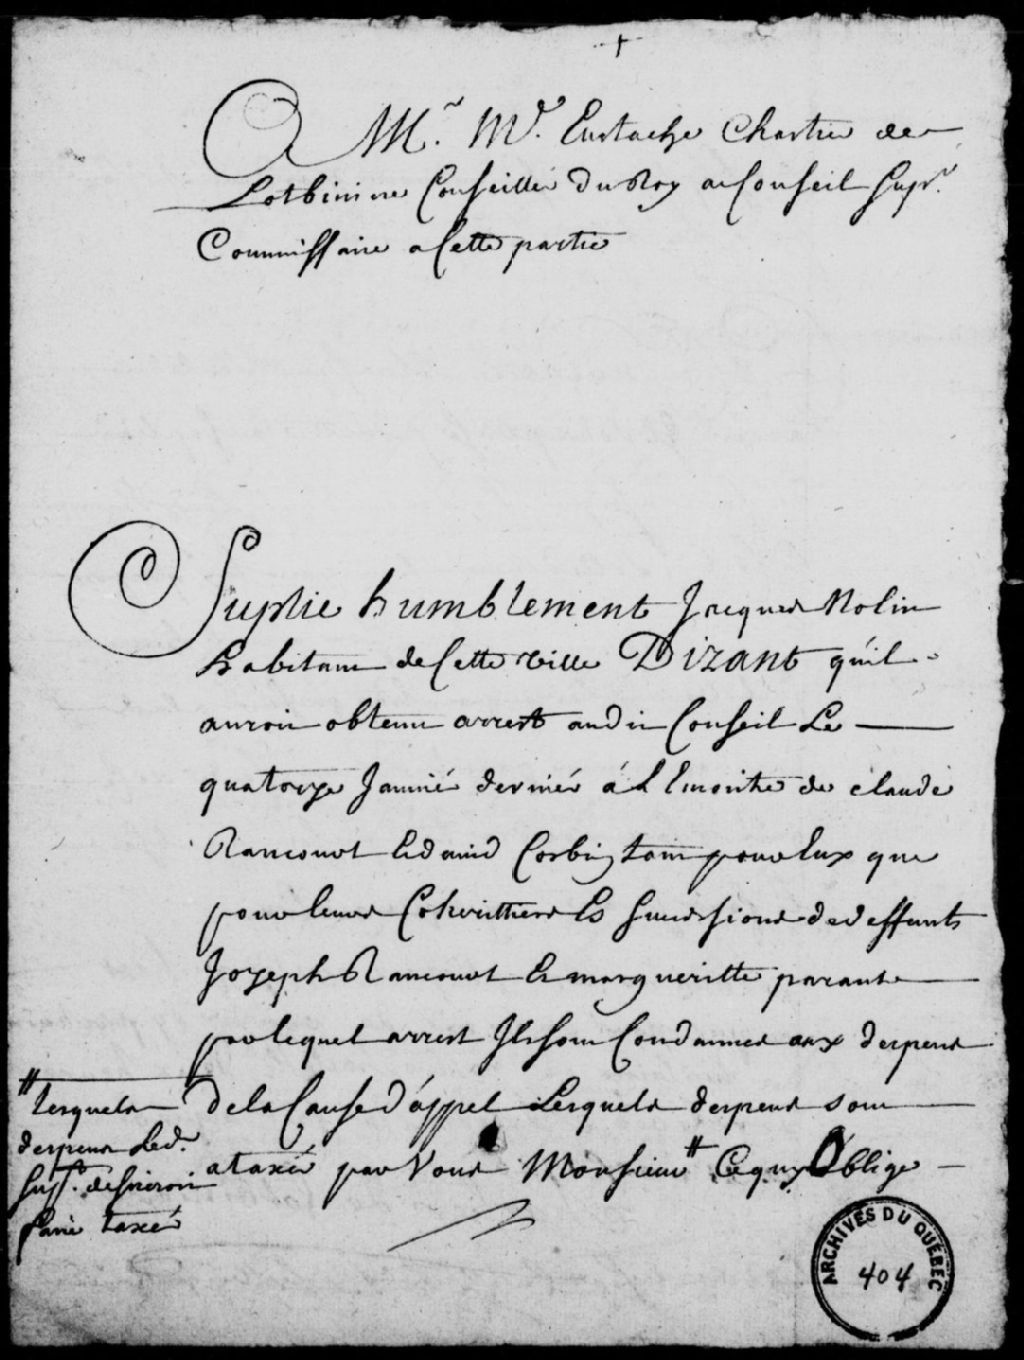 A M.r M.e Eustache Chartie de
Lotbiniere Conseillé du Roy au Conseil Supr.
Commissaire a Cette partie
Suplie humblement Jacques Nolin
habitant de Cette ville Dizant quil
auroit obtenu arrest audit Conseil Le
quatorze Janvié dernié á Lencontre de claude
Rancourt Et david Corbin tant pour Eux que
pour leurs Coheritiers Es Successions de deffunts
Joseph Rancourt Et margueritte parant
par lequel arrest Ils sont Condamnés aux despens
de la Cause d'appel Lesquels despens sont
a taxé par Vous Monsieur # Ce quy Oblige
# Lesquels
despens Led.
Sup.t desireroit
faire taxér
ARCHIVES DU QUÉBEC
404